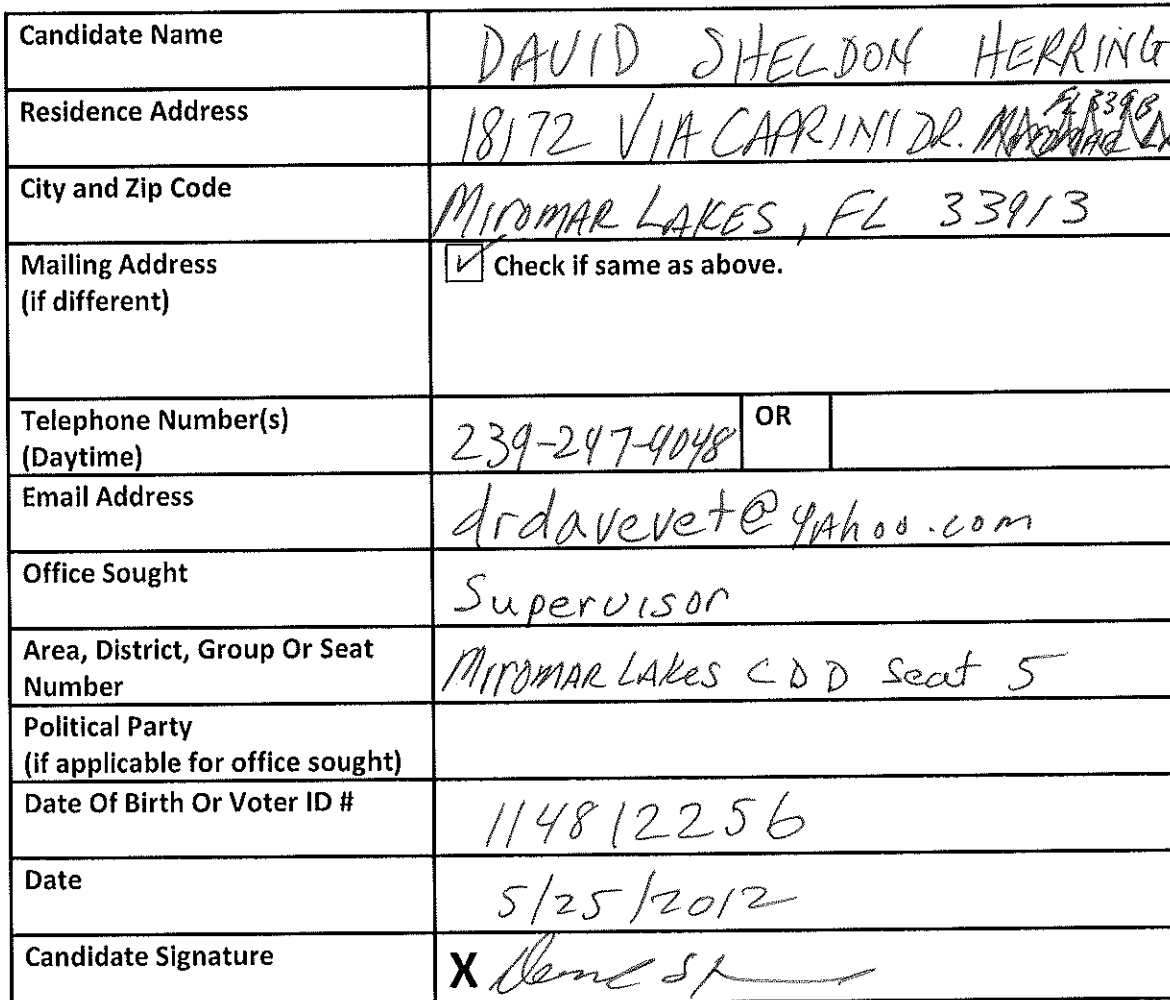 Candidate Name DAVID SHELDON HERRING
Residence Address 18172 VIA CAPRINI DR.
City and Zip Code MIROMAR LAKES, FL 33913
Mailing Address
(if different)
Check if same as above.
Telephone Number(s)
(Daytime)
239-247-4048 OR
Email Address drdavevet@yahoo.com
Office Sought Supervisor
Area, District, Group Or Seat
Number
MIROMAR LAKES CDD Seat 5
Political Party
(if applicable for office sought)
Date Of Birth Or Voter ID # 114812256
Date 5/25/2012
Candidate Signature X